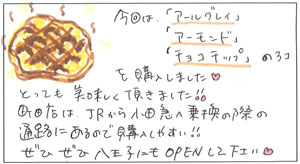 今回は、「アールグレイ」
「アーモンド」
「チョコチップ」の3コ
を購入しました♥
とっても美味しく頂きました!!
町田店は、JRから小田急へ乗換の際の
通路にあるので購入しやすい!!
ぜひぜひ八王子にもOPENして下さい♡